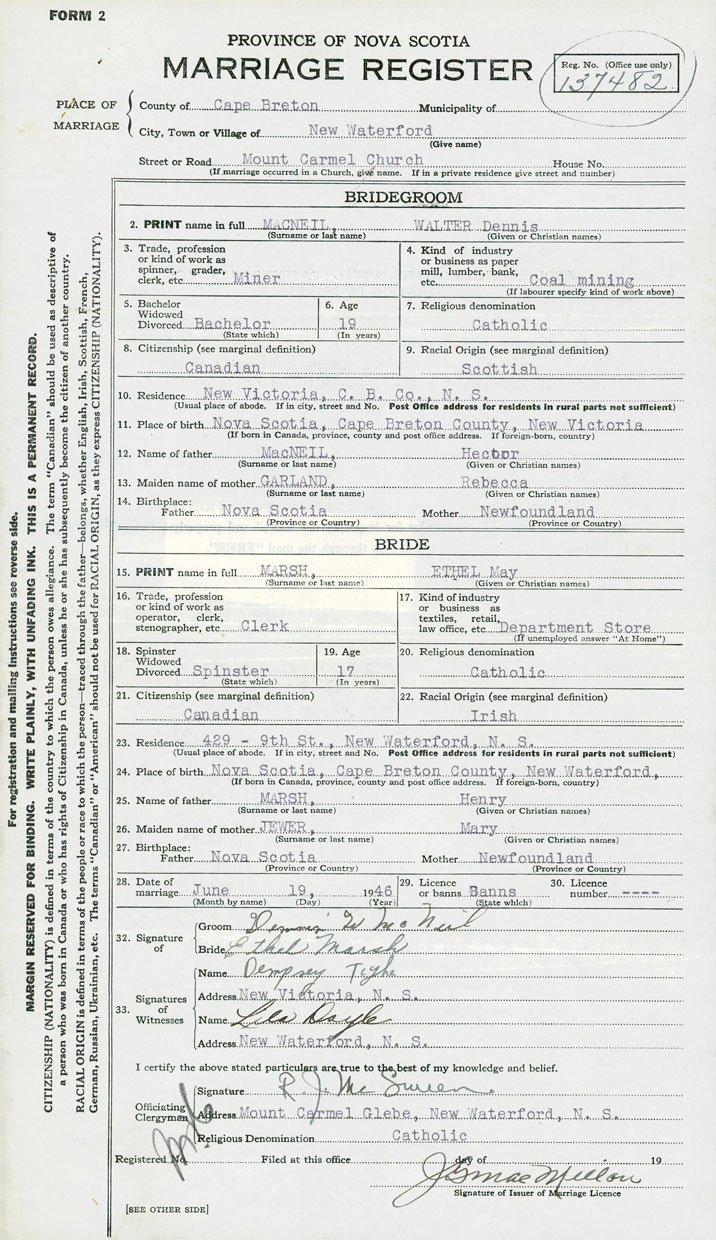 FORM 2
PROVINCE OF NOVA SCOTIA
MARRIAGE REGISTER
Reg. No. (Office use only)
137482
PLACE OF MARRIAGE
County of Cape Breton Municipality of
City, Town or Village of New Waterford
(Give name)
Street or Road Mount Carmel Church House No.
(If marriage occurred in a Church, give name. If in a private residence give street and number)
BRIDEGROOM
2. PRINT name in full MACNEIL, WALTER Dennis
(Surname or last name) (Given or Christian names)
3. Trade, profession or kind of work as spinner, grader, clerk, etc. Miner
4. Kind of industry or business as paper mill, lumber, bank, etc. Coal mining
(If labourer specify kind of work above)
5. Bachelor Widowed Divorced Bachelor
(State which)
6. Age 19
(In years)
7. Religious denomination
Catholic
8. Citizenship (see marginal definition)
Canadian
9. Racial Origin (see marginal definition)
Scottish
10. Residence New Victoria, C. B. Co., N. S.
(Usual place of abode. If in city, street and No. Post Office address for residents in rural parts not sufficient)
11. Place of birth Nova Scotia, Cape Breton County, New Victoria
(If born in Canada, province, county and post office address. If foreign-born, country)
12. Name of father MacNEIL, Hector
(Surname or last name) (Given or Christian names)
13. Maiden name of mother GARLAND, Rebecca
(Surname or last name) (Given or Christian names)
14. Birthplace:
Father Nova Scotia Mother Newfoundland
(Province or Country) (Province or Country)
BRIDE
15. PRINT name in full MARSH, ETHEL May
(Surname or last name) (Given or Christian names)
16. Trade, profession or kind of work as operator, clerk, stenographer, etc Clerk
17. Kind of industry or business as textiles, retail, law office, etc. Department Store
(If unemployed answer "At Home")
18. Spinster Widowed Divorced Spinster
(State which)
19. Age 17
(In years)
20. Religious denomination
Catholic
21. Citizenship (see marginal definition)
Canadian
22. Racial Origin (see marginal definition)
Irish
23. Residence 429 - 9th St., New Waterford, N. S.
(Usual place of abode. If in city, street and No. Post Office address for residents in rural parts not sufficient)
24. Place of birth Nova Scotia, Cape Breton County, New Waterford,
(If born in Canada, province, county and post office address. If foreign-born, country)
25. Name of father MARSH, Henry
(Surname or last name) (Given or Christian names)
26. Maiden name of mother JEWER, Mary
(Surname or last name) (Given or Christian names)
27. Birthplace:
Father Nova Scotia Mother Newfoundland
(Province or Country) (Province or Country)
28. Date of marriage June 19, 1946
(Month by name) (Day) (Year)
29. Licence or banns Banns
(State which)
30. Licence number ----
32. Signature of
Groom Dennis W McNeil
Bride Ethel Marsh
33. Signatures of Witnesses
Name Dempsey Tighe
Address New Victoria, N. S.
Name Lila Doyle
Address New Waterford, N. S.
I certify the above stated particulars are true to the best of my knowledge and belief.
Officiating Clergyman
Signature R. J. McSween
Address Mount Carmel Glebe, New Waterford, N. S.
Religious Denomination Catholic
Registered No. Filed at this office day of 19
Signature of Issuer of Marriage Licence
[SEE OTHER SIDE]
For registration and mailing instructions see reverse side.
MARGIN RESERVED FOR BINDING. WRITE PLAINLY, WITH UNFADING INK. THIS IS A PERMANENT RECORD.
CITIZENSHIP (NATIONALITY) is defined in terms of the country to which the person owes allegiance. The term "Canadian" should be used as descriptive of
a person who was born in Canada or who has rights of Citizenship in Canada, unless he or she has subsequently become the citizen of another country.
RACIAL ORIGIN is defined in terms of the people or race to which the person—traced through the father—belongs, whether English, Irish, Scottish, French,
German, Russian, Ukrainian, etc. The terms "Canadian" or "American" should not be used for RACIAL ORIGIN, as they express CITIZENSHIP (NATIONALITY).